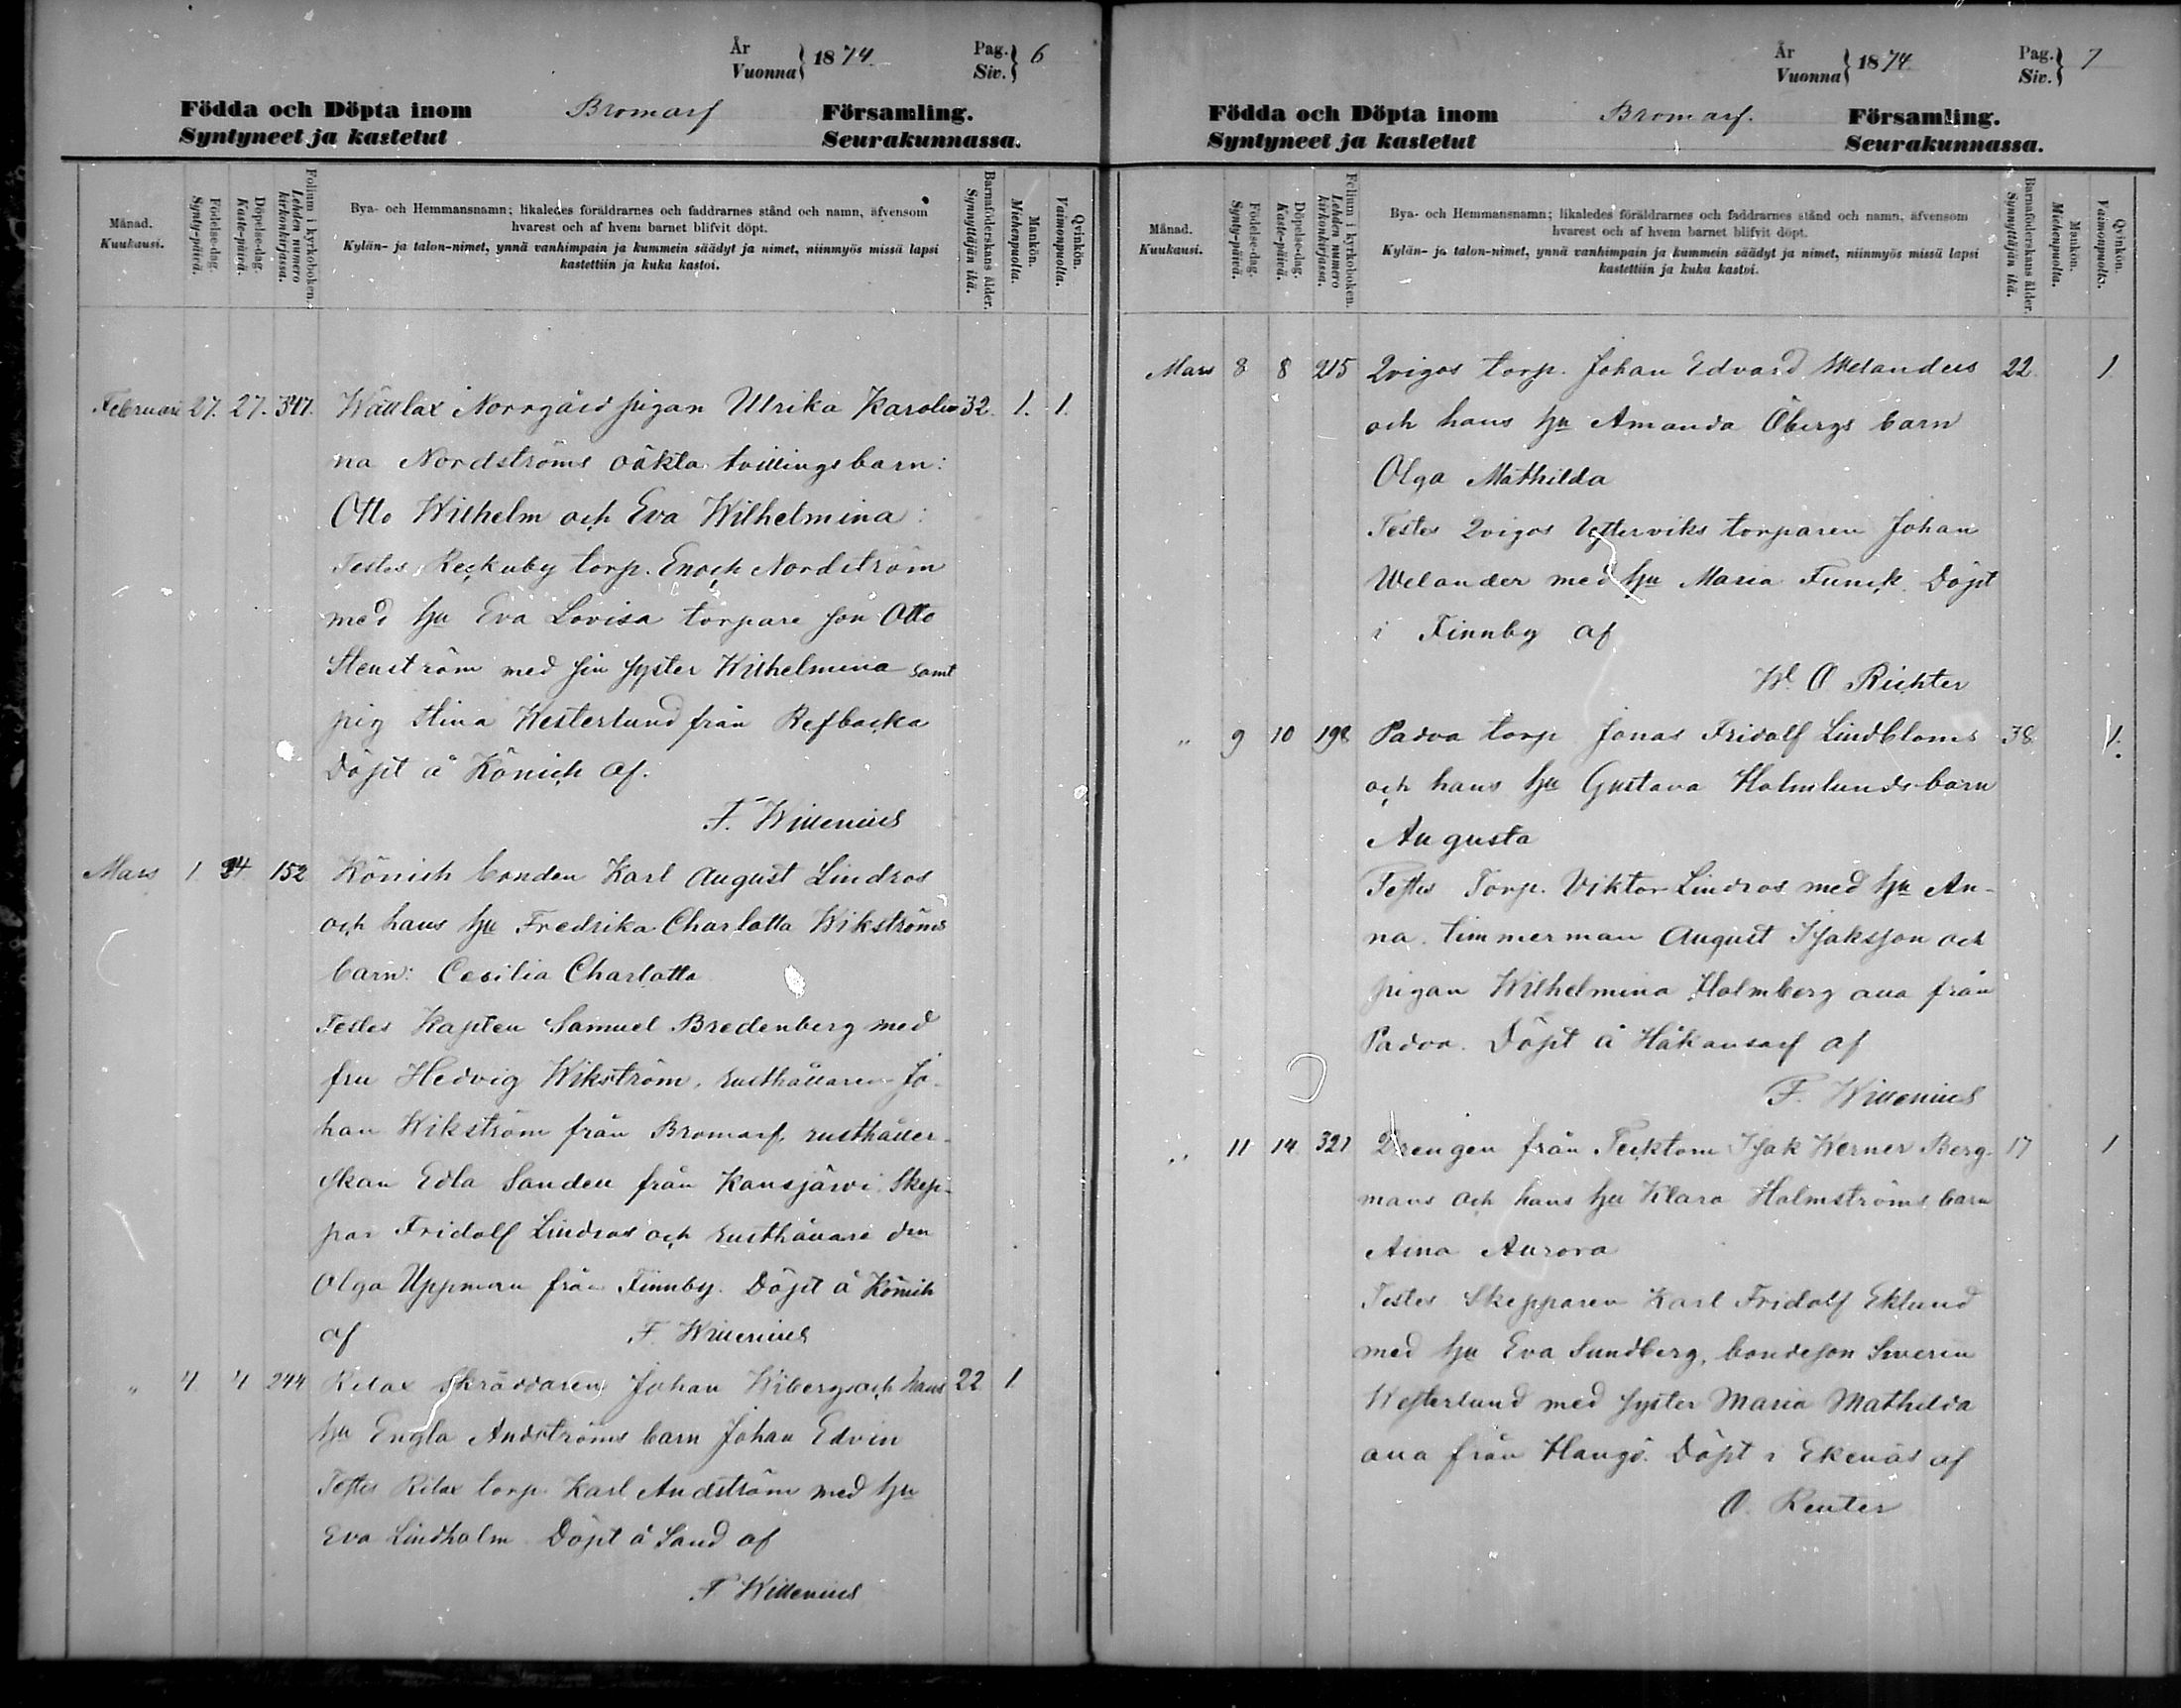 År
Vuonna } 1874. Pag.
Siv. } 6
Födda och Döpta inom Bromarf Församling.
Syntyneet ja kastetut Seurakunnassa.
Månad.
Kuukausi.
Födelse-dag.
Synty-päivä.
Döpelse-dag.
Kaste-päivä.
Folium i kyrkoboken.
Lehden numero
kirkonkirjassa.
Bya- och Hemmansnamn; likaledes föräldrarnes och faddrarnes stånd och namn, äfvensom
hvarest och af hvem barnet blifvit döpt.
Kylän- ja talon-nimet, ynnä vanhimpain ja kummein säädyt ja nimet, niinmyös missä lapsi
kastettiin ja kuka kastoi.
Barnaföderskans ålder.
Synnyttäjän ikä.
Mankön.
Miehenpuolta.
Qvinkön.
Vaimonpuolta.
Februari 27. 27. 347. Wättlax Norrgård pigan Ulrika Karoli- 32. 1. 1.
na Nordströms oäkta tvillingsbarn:
Otto Wilhelm och Eva Wilhelmina:
Testes Reckuby torp. Enoch Nordström
med hu Eva Lovisa torpare son Otto
Stenström med sin syster Wilhelmina samt
pig Stina Westerlund från Refbacka
Döpt å Könich af.
F. Willenius
Mars 1 24 152 Könich bonden Karl August Lindros
och hans hu Fredrika Charlotta Wikströms
barn: Cecilia Charlotta
Testes Kapten Samuel Bredenberg med
fru Hedvig Wikström, rusthållaren Jo-
han Wikström från Bromarf, rusthåller-
skan Edla Sanden från Kansjärvi. Skep-
par Fridolf Lindros och rusthållare dm
Olga Uppman från Finnby. Döpt å Könich
af F. Willenius
" 4 4 244 Rilax skräddaren Johan Wibergs och hans 22 1
hu Engla Andströms barn Johan Edvin
Testes Rilax torp. Karl Andström med hu
Eva Lindholm Döpt å Sand af
F. Willenius
År
Vuonna } 1874. Pag.
Siv. } 7
Födda och Döpta inom Bromarf. Församling.
Syntyneet ja kastetut Seurakunnassa.
Månad.
Kuukausi.
Födelse-dag.
Synty-päivä.
Döpelse-dag.
Kaste-päivä.
Folium i kyrkoboken.
Lehden numero
kirkonkirjassa.
Bya- och Hemmansnamn; likaledes föräldrarnes och faddrarnes stånd och namn, äfvensom
hvarest och af hvem barnet blifvit döpt.
Kylän- ja talon-nimet, ynnä vanhimpain ja kummein säädyt ja nimet, niinmyös missä lapsi
kastettiin ja kuka kastoi.
Barnaföderskans ålder.
Synnyttäjän ikä.
Mankön.
Miehenpuolta.
Qvinkön.
Vaimonpuolta.
Mars 8 8 215 Qvigos torp. Johan Edvard Welanders 22 1
och hans hu Amanda Öbergs barn
Olga Mathilda
Testes Qvigos torparen Johan
Welander med hu Maria Funck. Döpt
i Finnby af
W. O Richter
" 9 10 198 Padva torp Jonas Fridolf Lindbloms 38 1.
och hans hu Gustava Holmlunds barn
Augusta
Testes Torp. Viktor Lindros med hu An-
na. timmerman August Isaksson och
pigan Wilhelmina Holmberg alla från
Padva. Döpt å Håkansarf af
F. Willenius
" 11 14 321 Drengen från Tecktom Isak Werner Berg- 17 1
mans och hans hu Klara Holmströms barn
Aina Aurora
Testes Skepparen Karl Fridolf Eklund
med hu Eva Sundberg, bondeson Severin
Westerlund med syster Maria Mathilda
alla från Hangö. Döpt i Ekenäs af
O. Reuter